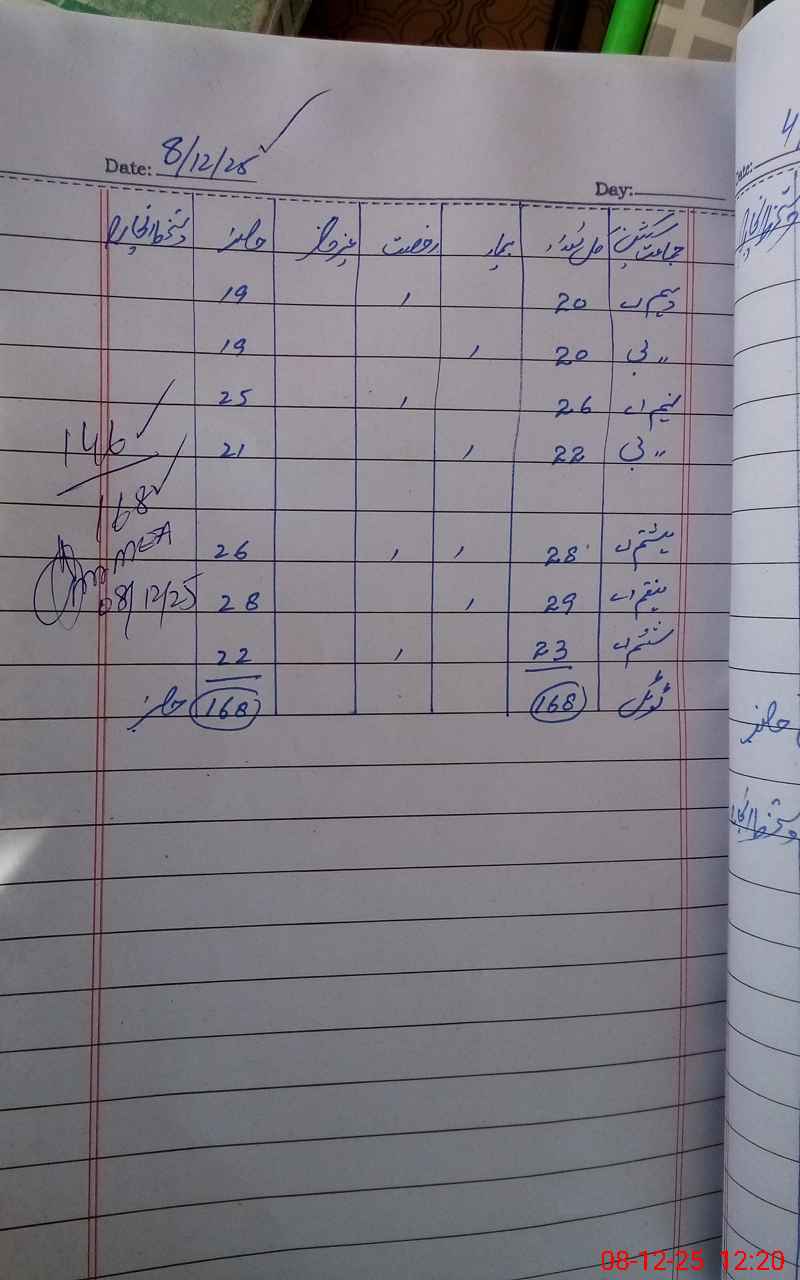 Date: 8/12/25
Day:
جماعت سیکشن کل تعداد بیمار رخصت غیر حاضر حاضر دستخط انچارج
دہم اے 20 ۱ 19
" بی 20 ۱ 19
نہم اے 26 ۱ 25
" بی 22 ۱ 21
ہشتم اے 28 ۱ ۱ 26
ہفتم اے 29 ۱ 28
ششم اے 23 ۱ 22
ٹوٹل 168 168 حاضر
146
168
MEA
08/12/25
4
Date:
دستخط انچارج
حاضر
دستخط انچارج
08-12-25 12:20